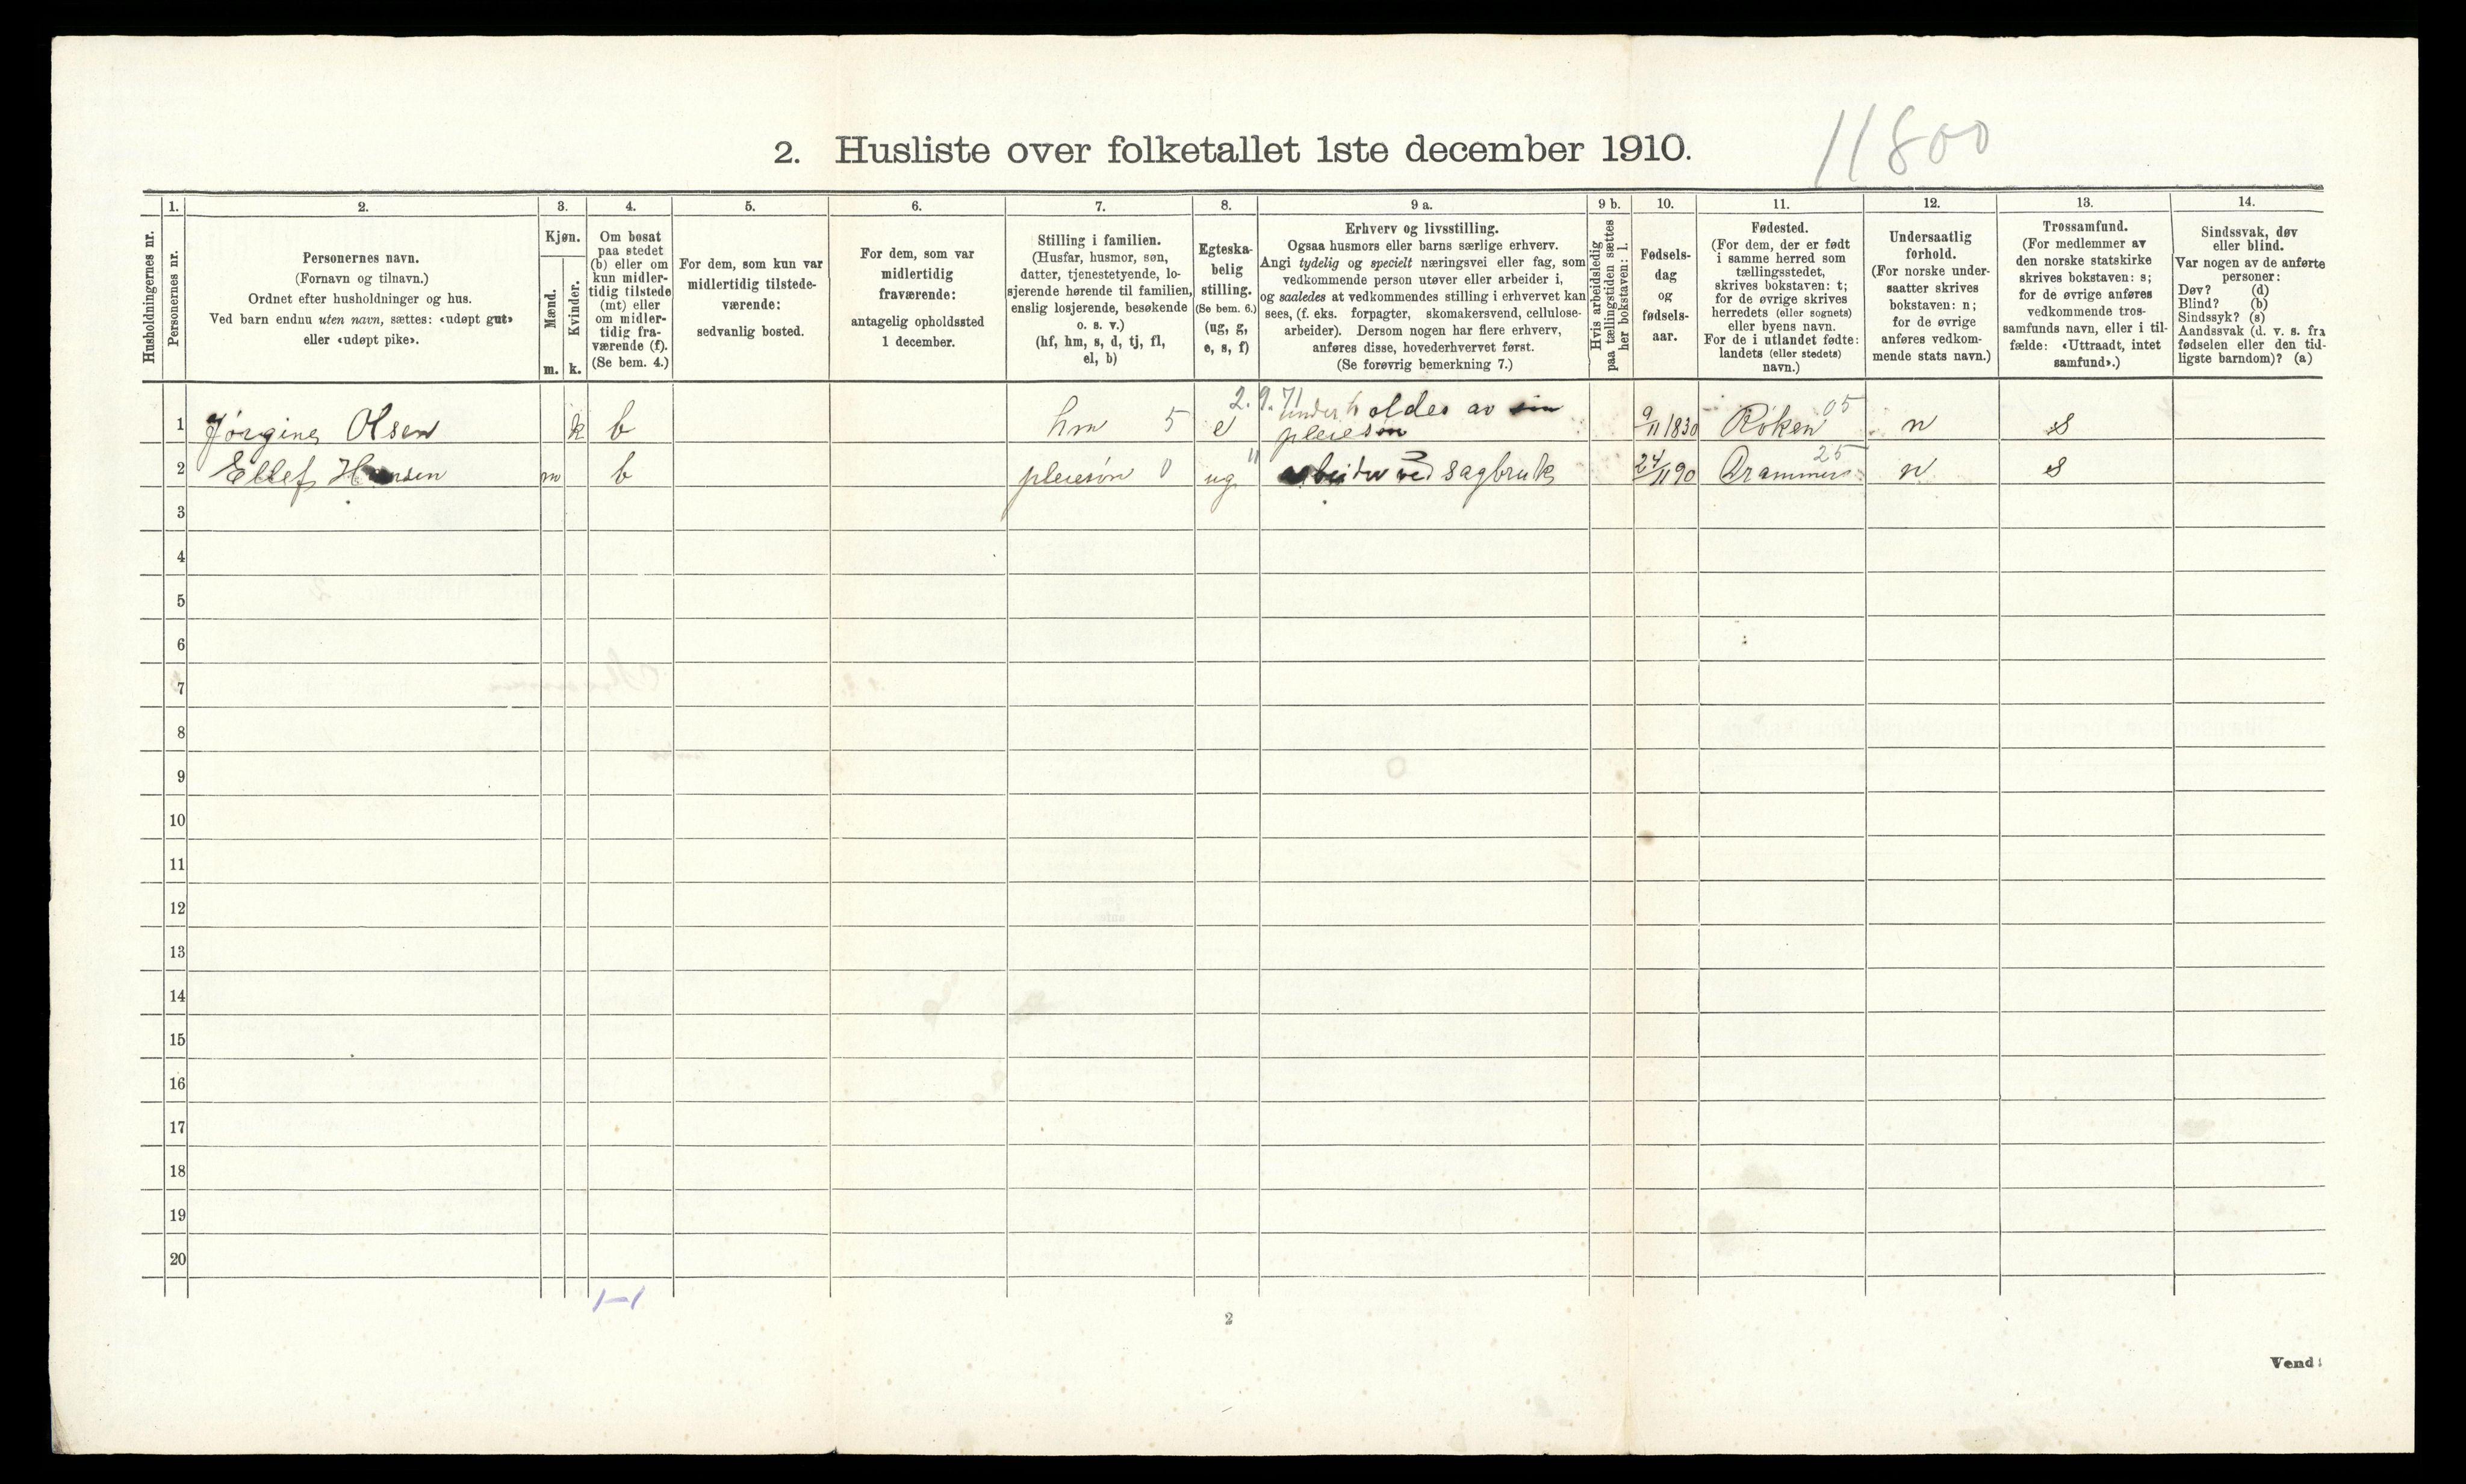 2. Husliste over folketallet 1ste december 1910.
11800
Husholdningernes nr.
1.
Personernes nr.
2.
Personernes navn.
(Fornavn og tilnavn.)
Ordnet efter husholdninger og hus.
Ved barn endnu uten navn, sættes: «udøpt gut»
eller «udøpt pike».
3.
Kjøn.
Mænd.
m.
Kvinder.
k.
4.
Om bosat
paa stedet
(b) eller om
kun midler-
tidig tilstede
(mt) eller
om midler-
tidig fra-
værende (f).
(Se bem. 4.)
5.
For dem, som kun var
midlertidig tilstede-
værende:
sedvanlig bosted.
6.
For dem, som var
midlertidig
fraværende:
antagelig opholdssted
1 december.
7.
Stilling i familien.
(Husfar, husmor, søn,
datter, tjenestetyende, lo-
sjerende hørende til familien,
enslig losjerende, besøkende
o. s. v.)
(hf, hm, s, d, tj, fl,
el, b)
8.
Egteska-
belig
stilling.
(Se bem. 6.)
(ug, g,
e, s, f)
9 a.
Erhverv og livsstilling.
Ogsaa husmors eller barns særlige erhverv.
Angi tydelig og specielt næringsvei eller fag, som
vedkommende person utøver eller arbeider i,
og saaledes at vedkommendes stilling i erhvervet kan
sees, (f. eks. forpagter, skomakersvend, cellulose-
arbeider). Dersom nogen har flere erhverv,
anføres disse, hovederhvervet først.
(Se forøvrig bemerkning 7.)
9 b.
Hvis arbeidsledig
paa tællingstiden sættes
her bokstaven: l.
10.
Fødsels-
dag
og
fødsels-
aar.
11.
Fødested.
(For dem, der er født
i samme herred som
tællingsstedet,
skrives bokstaven: t;
for de øvrige skrives
herredets (eller sognets)
eller byens navn.
For de i utlandet fødte:
landets (eller stedets)
navn.)
12.
Undersaatlig
forhold.
(For norske under-
saatter skrives
bokstaven: n;
for de øvrige
anføres vedkom-
mende stats navn.)
13.
Trossamfund.
(For medlemmer av
den norske statskirke
skrives bokstaven: s;
for de øvrige anføres
vedkommende tros-
samfunds navn, eller i til-
fælde: «Uttraadt, intet
samfund».)
14.
Sindssvak, døv
eller blind.
Var nogen av de anførte
personer:
Døv? (d)
Blind? (b)
Sindssyk? (s)
Aandssvak (d. v. s. fra
fødselen eller den tid-
ligste barndom)? (a)
2.9.71 05
1 Jørgine Olsen k b hm 5 e underholdes av sin pleiesøn 9/11 1830 Røken n s
25
2 Ellef Hansen m b pleiesøn 0 ug arbeider ved sagbruk 24/11 90 Drammen n s
3
4
5
6
7
8
9
10
11
12
13
14
15
16
17
18
19
20
1-1
2
Vend!